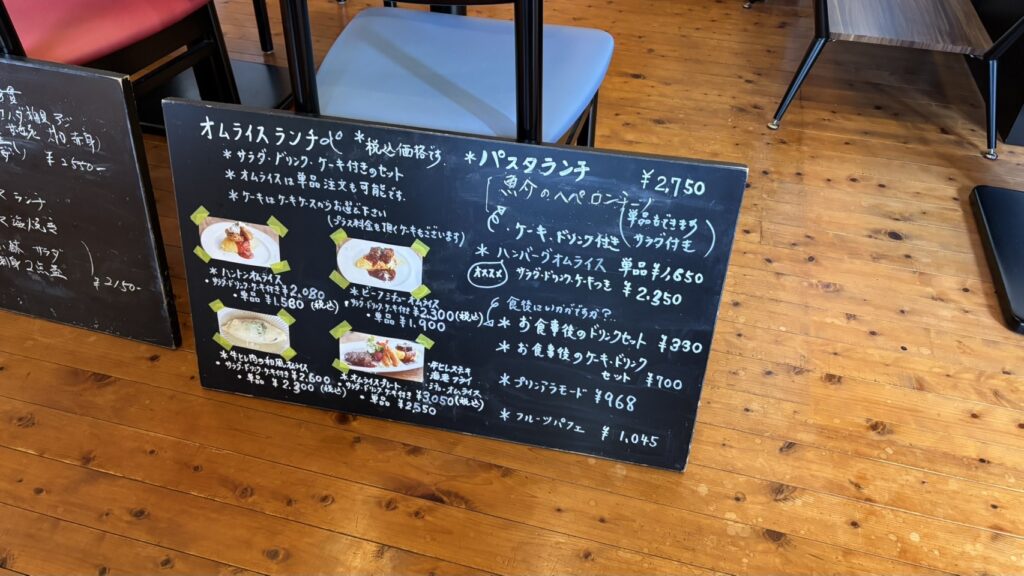 ¥2,550-
ランチ
¥2150-
オムライスランチ
*税込価格です
*サラダ・ドリンク・ケーキ付きのセット
*オムライスは単品注文も可能です.
*ケーキはケーキケースからお選び下さい
(プラス料金を頂くケーキもございます)
*ハントンオムライス
サラダ・ドリンク・ケーキ付き¥2,080
・単品 ¥1,580 (税込)
*ビーフシチューオムライス
サラダ・ドリンク・ケーキ付 ¥2,300(税込)
・単品 ¥1,900
サラダ・ドリンク・ケーキ付き¥2,600
・単品 ¥2,300(税込)
*オムライスプレート
サラダ・ドリンク・ケーキ付 ¥3,050(税込)
・単品 ¥2,550
海老フライ
オムライス
*パスタランチ ¥2,750
魚介のペペロンチーノ
(単品もできます
サラダ付き)
・ケーキ、ドリンク付き
*ハンバーグオムライス 単品¥1,650
オススメ
サラダ・ドリンク・ケーキつき ¥2,350
食後はいかがですか?
*お食事後のドリンクセット ¥330
*お食事後のケーキ・ドリンク
セット ¥700
*プリンアラモード ¥968
*フルーツパフェ ¥1,045